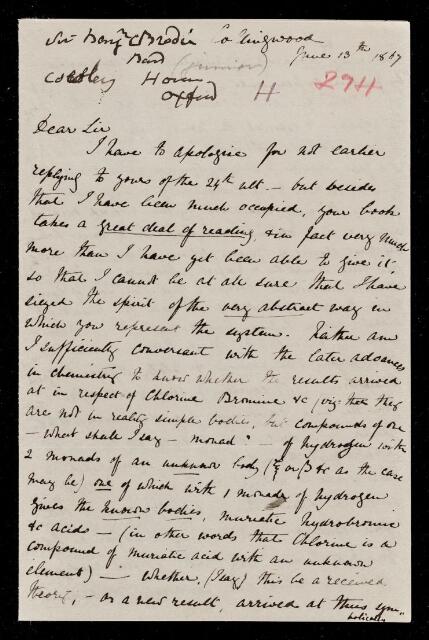 Sir Benj. C Brodie Collingwood
Bart (junior) June 13th 1867
Cowley House
Oxford H 294
Dear Sir
I have to apologise for not earlier
replying to yours of the 24th ult. – but besides
that I have been much occupied, your book
takes a great deal of reading, & in fact very much
more than I have yet been able to give it,
so that I cannot be at all sure that I have
siezed the spirit of the very abstract way in
which you represent the system. Neither am
I sufficiently conversant with the later advances
in chemistry to know whether the results arrived
at in respect of Chlorine Bromine &c (viz: that they
are not in reality simple bodies, but compounds of one
– what shall I say – monad" – of hydrogen with
2 monads of an unknown body (ξ or β &c as the case
may be) one of which with 1 monad of hydrogen
gives the known bodies, muriatic hydrobromic
&c acids – (in other words that Chlorine is a
compound of muriatic acid with an unknown
element) – whether, (I say) this be a received
theory, – or a new result, arrived at thus sym-
bolically